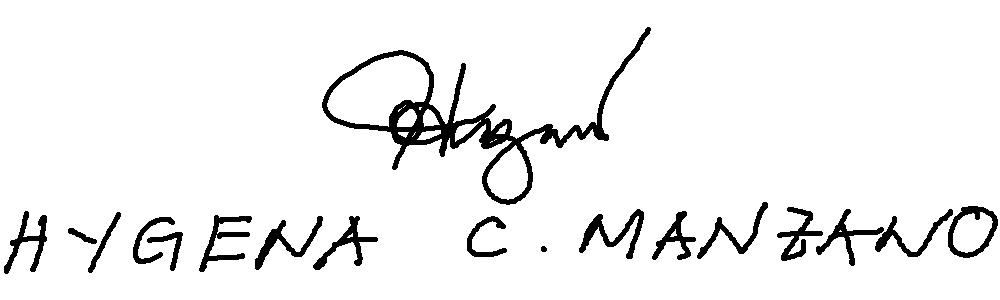 HYGENA C. MANZANO